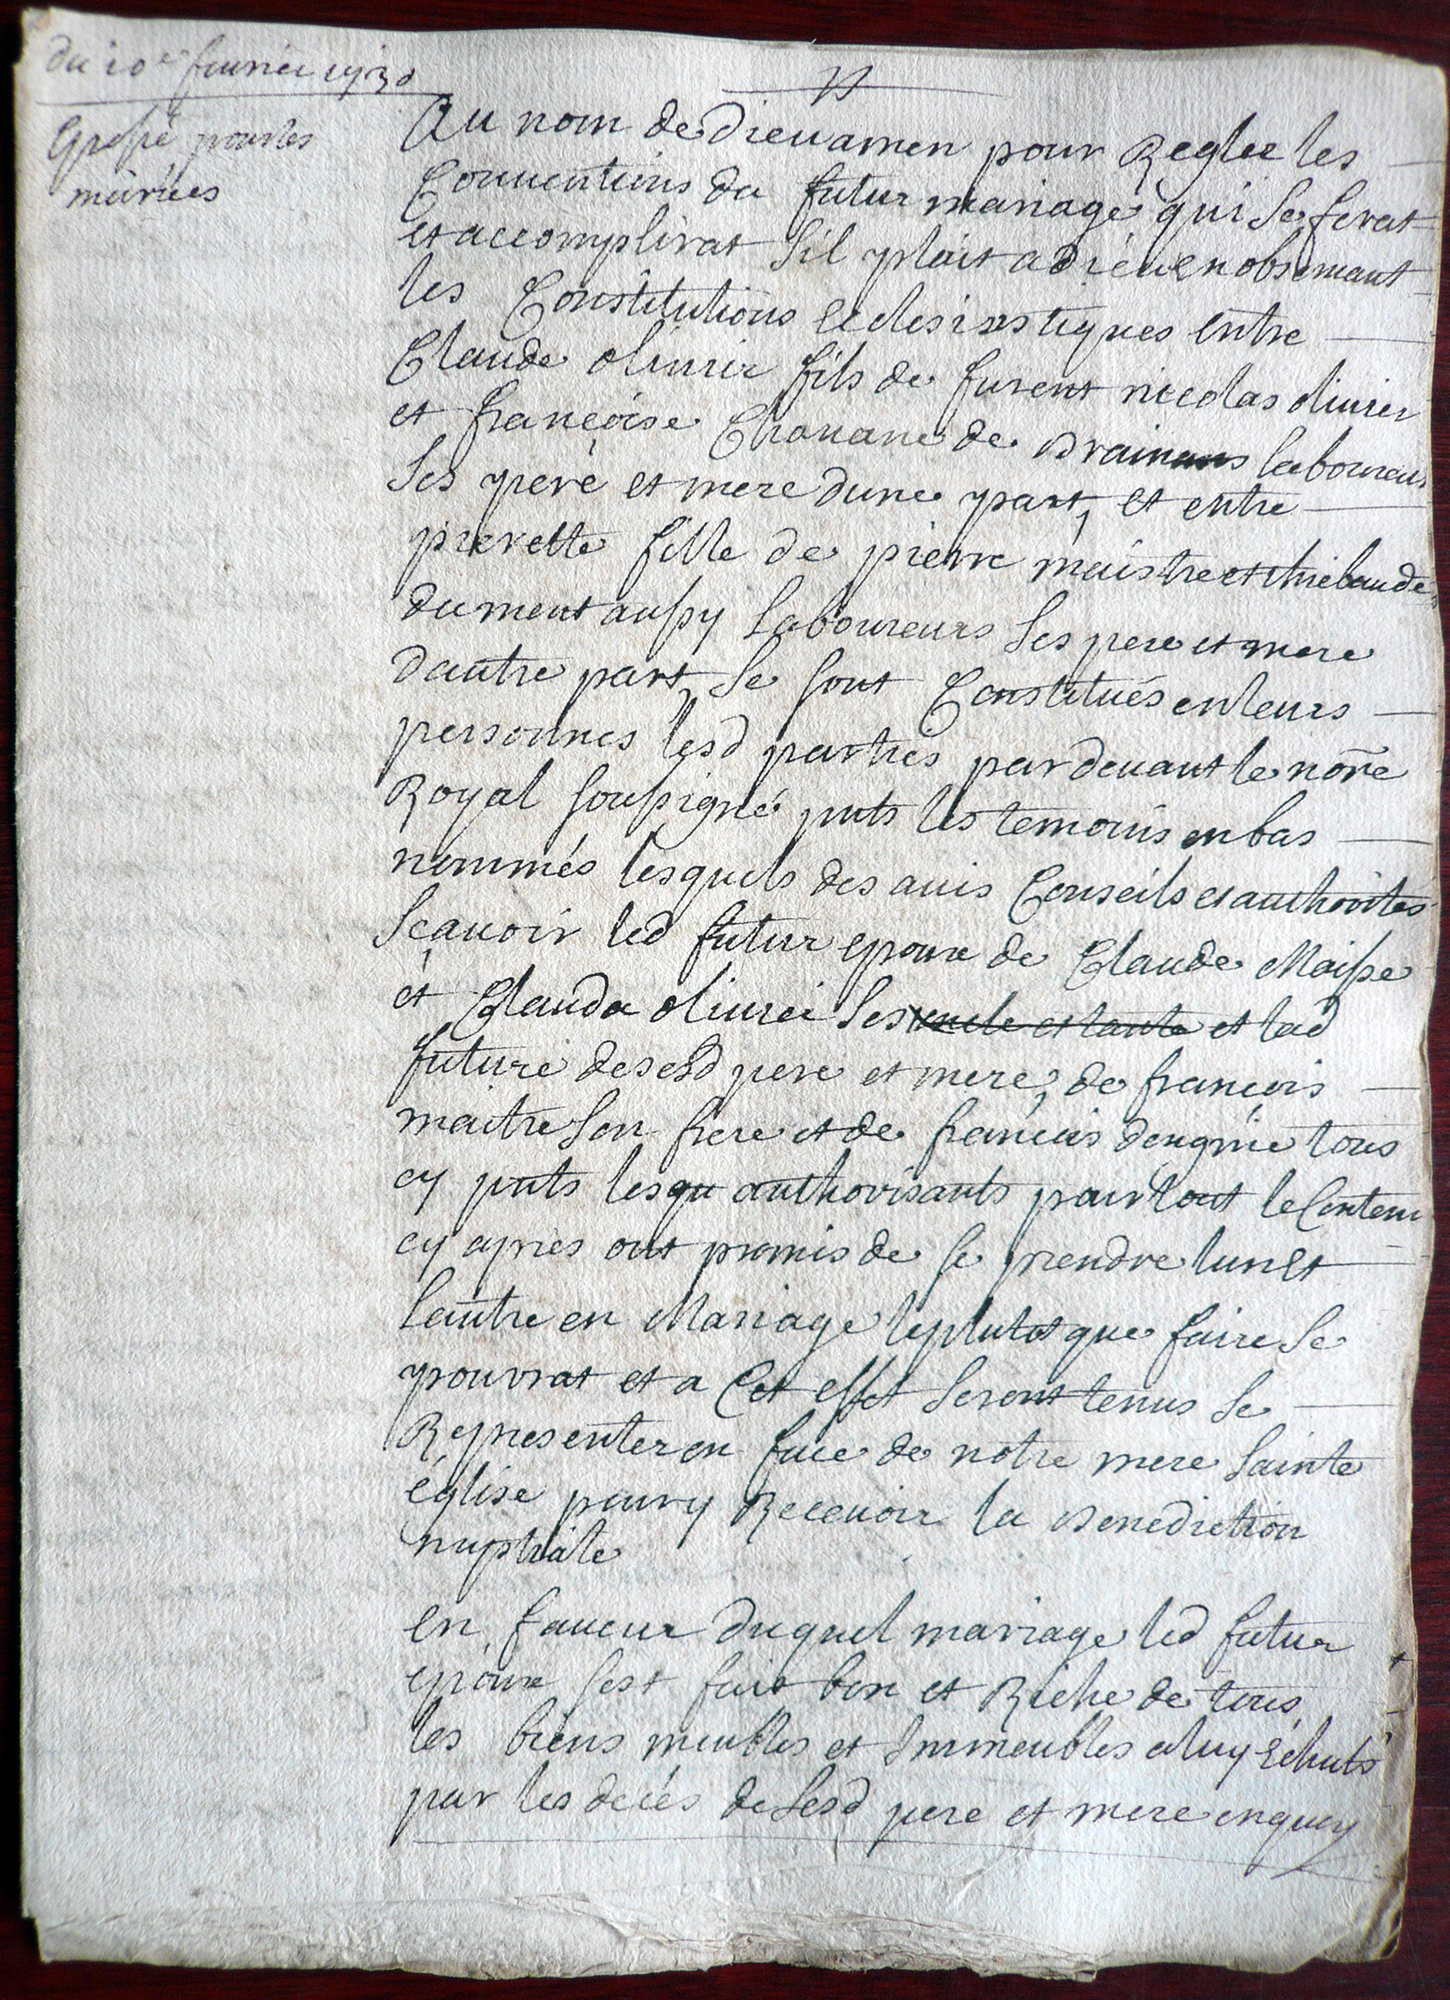 du 10e feuvrier 1730
Grossé pour les
mariées
Au nom de dieu amen pour Regler les
Conventions du futur mariage qui se ferat
et accomplirat sil plait a dieu en observant
les Constitutions Eclesiastiques entre
Claude olivier fils de furent nicolas olivier
et françoise Chouane de Brainans laboureurs
ses pere et mere dune part, et entre
pierrette fille de pierre maistre et thiebaude
dument aussy laboureurs ses pere et mere
dautre part, se sont Constitués en leurs
personnes lesd parties pardevant le nore
Royal soussigné pnts les temoins en bas
nommés lesquels des avis Conseils et authorités
Scavoir led futur epoux de Claude Maisse
et Clauda olivier ses oncle et tante et lad
future desesd pere et mere, de francois
maitre son frere et de francois tous
cy pnts lesqu authorisants pour tout le Contenu
cy apres ont promis de se prendre lun et
lautre en Mariage leplutost que faire se
pourrat et a Cet effet seront tenus se
Representer en face de notre mere sainte
église pour y Recevoir la Benediction
nuptiale
en faveur duquel mariage led futur
epoux sest fait bon et Riche de tous
les biens meubles et Immeubles a luy Echuts
par les decés de sesd pere et mere en quoy